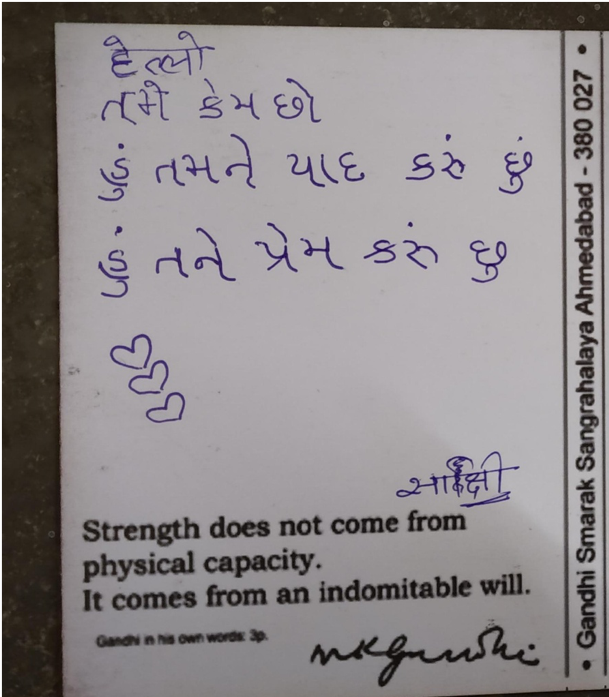 हेल्लो
તમે કેમ છો
હું તમને યાદ કરું છું
હું તને પ્રેમ કરું છુ
Strength does not come from
physical capacity.
It comes from an indomitable will.
Gandhi in his own words: 3p.
MKGandhi
• Gandhi Smarak Sangrahalaya Ahmedabad - 380 027 •